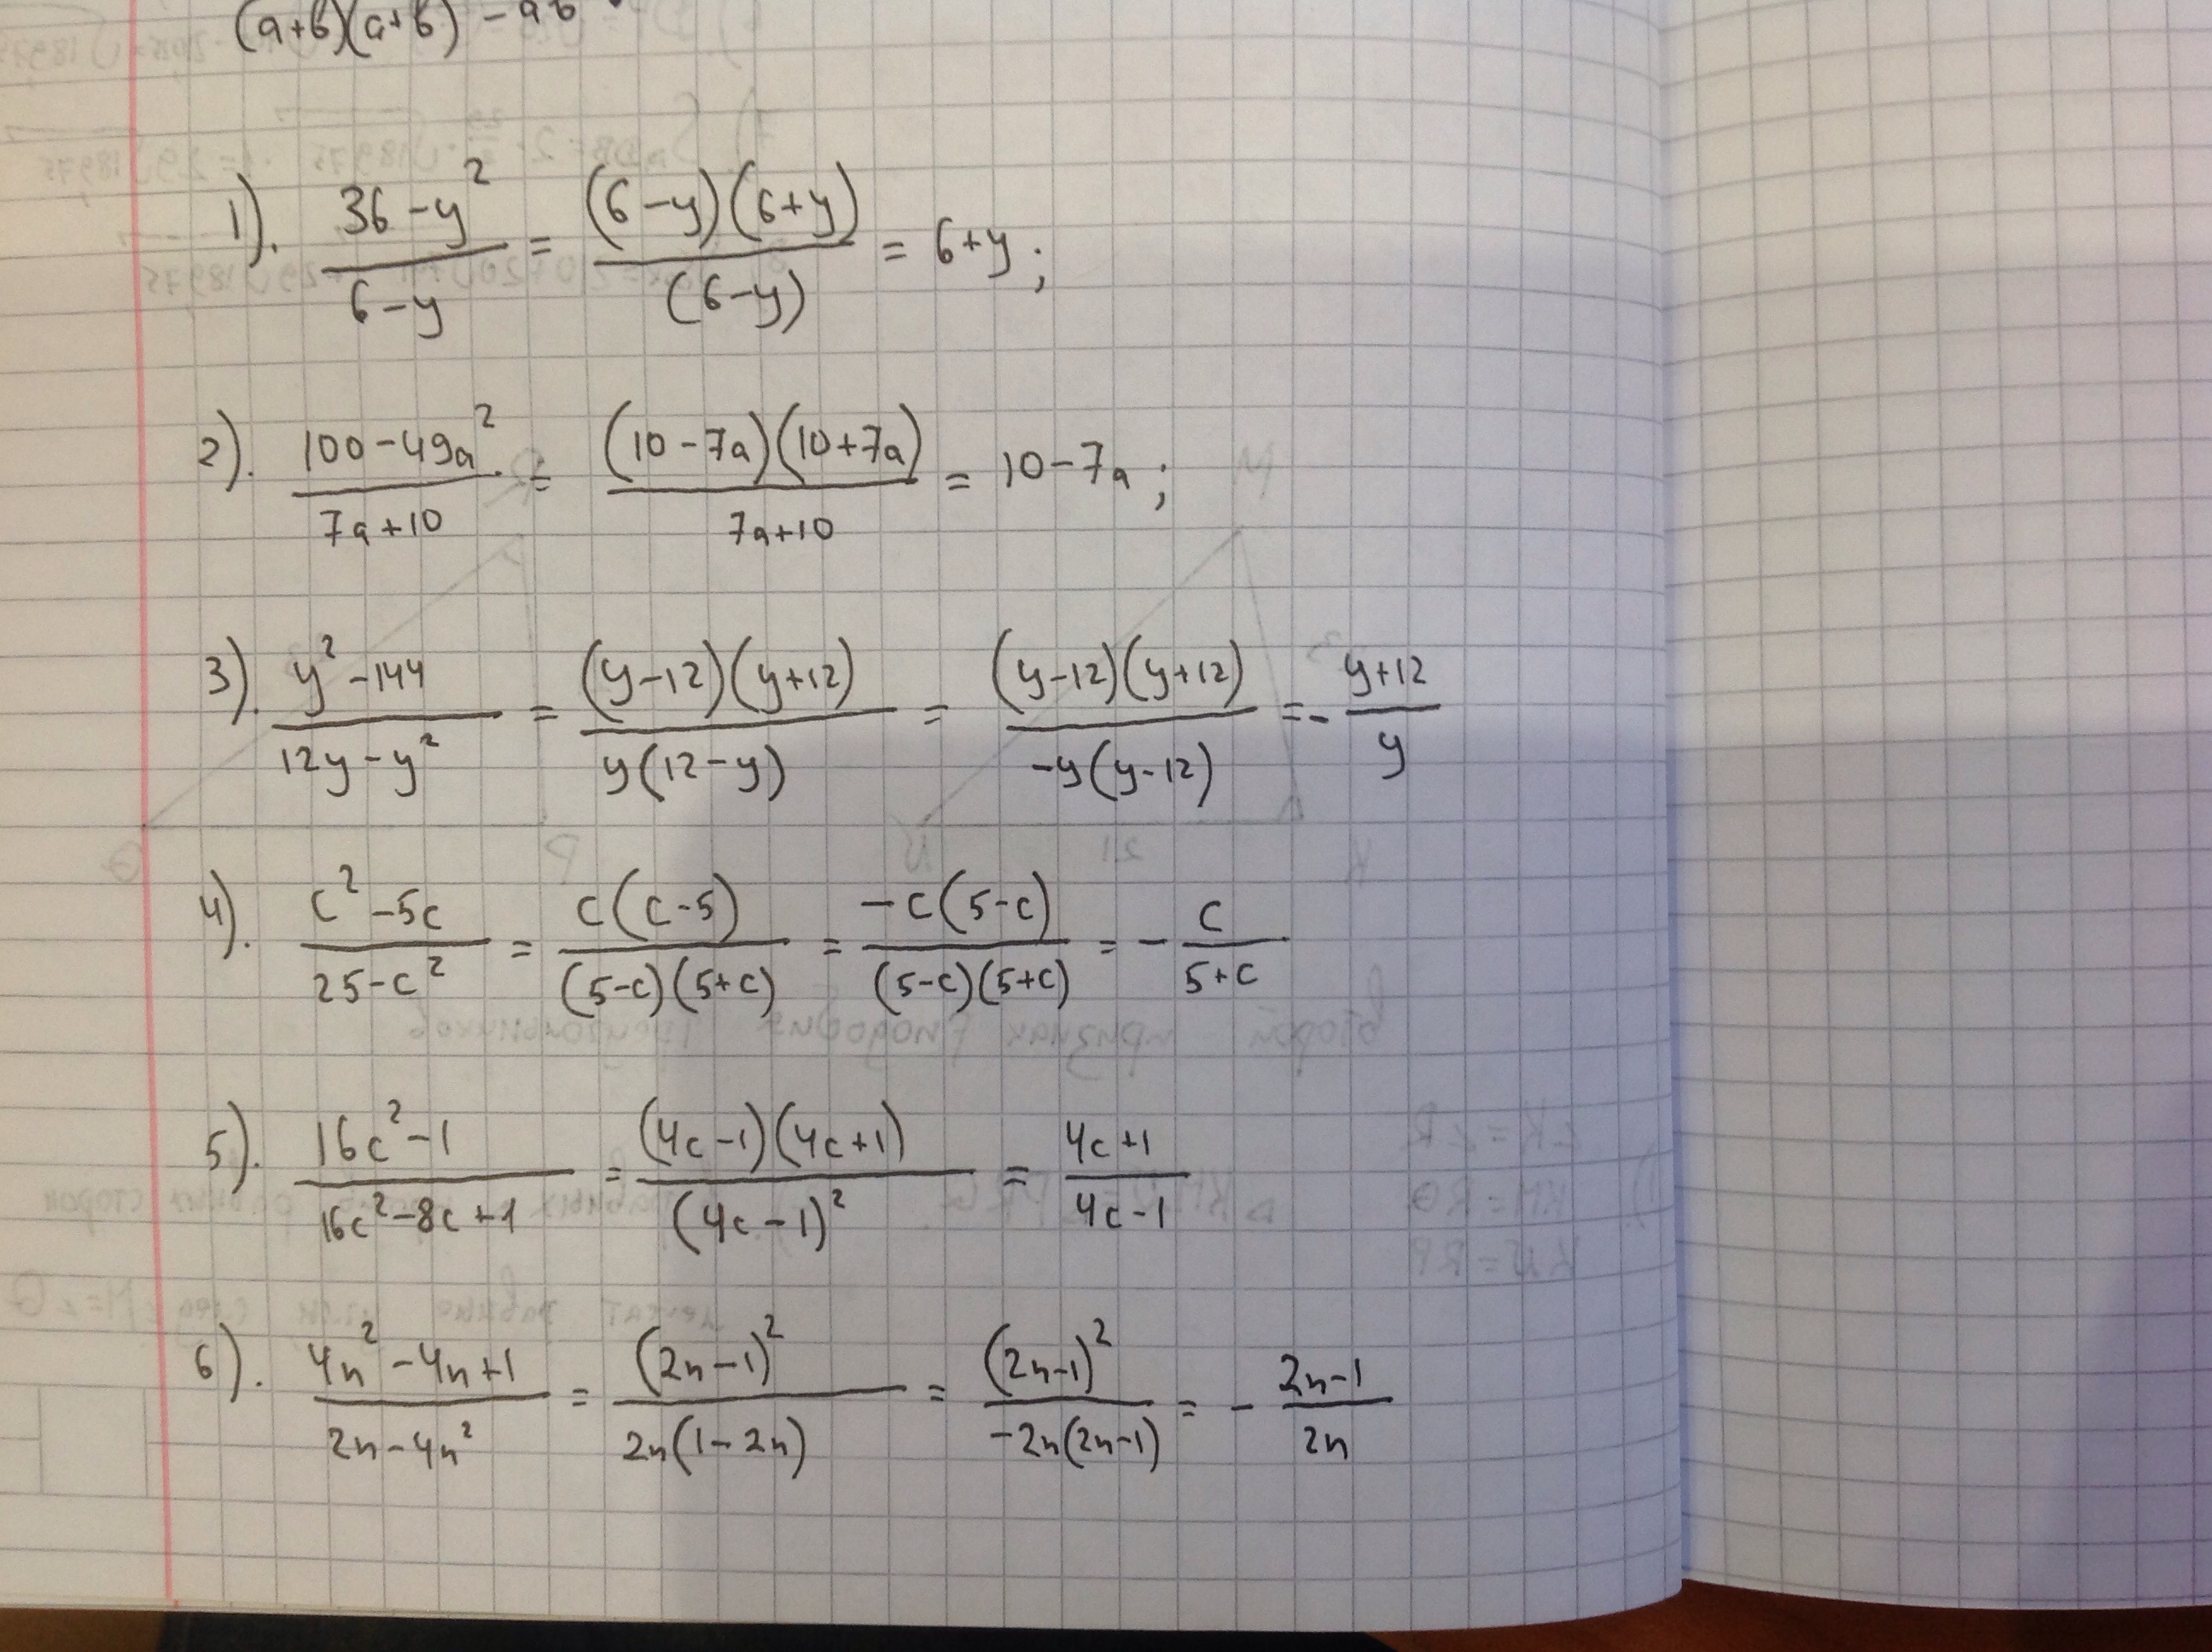 (a+b)(a+b) - ab
1). (36-y²)/(6-y) = ((6-y)(6+y))/((6-y)) = 6+y;
2). (100-49a²)/(7a+10) = ((10-7a)(10+7a))/(7a+10) = 10-7a;
3). (y²-144)/(12y-y²) = ((y-12)(y+12))/(y(12-y)) = ((y-12)(y+12))/(-y(y-12)) = - (y+12)/y
4). (c²-5c)/(25-c²) = (c(c-5))/((5-c)(5+c)) = (-c(5-c))/((5-c)(5+c)) = - c/(5+c)
5). (16c²-1)/(16c²-8c+1) = ((4c-1)(4c+1))/((4c-1)²) = (4c+1)/(4c-1)
6). (4n²-4n+1)/(2n-4n²) = ((2n-1)²)/(2n(1-2n)) = ((2n-1)²)/(-2n(2n-1)) = - (2n-1)/(2n)